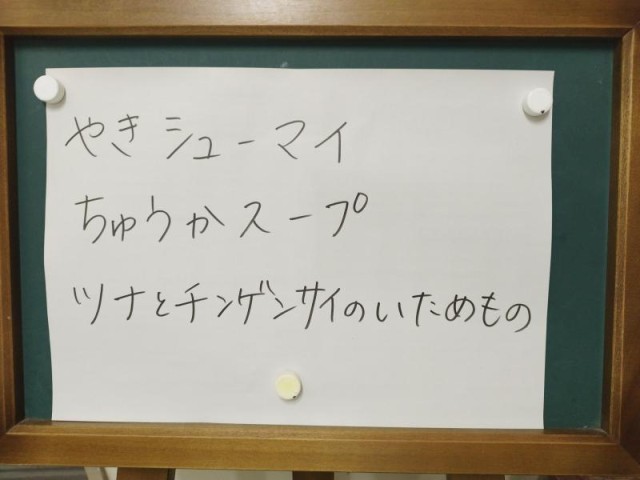 やきシューマイ
ちゅうかスープ
ツナとチンゲンサイのいためもの